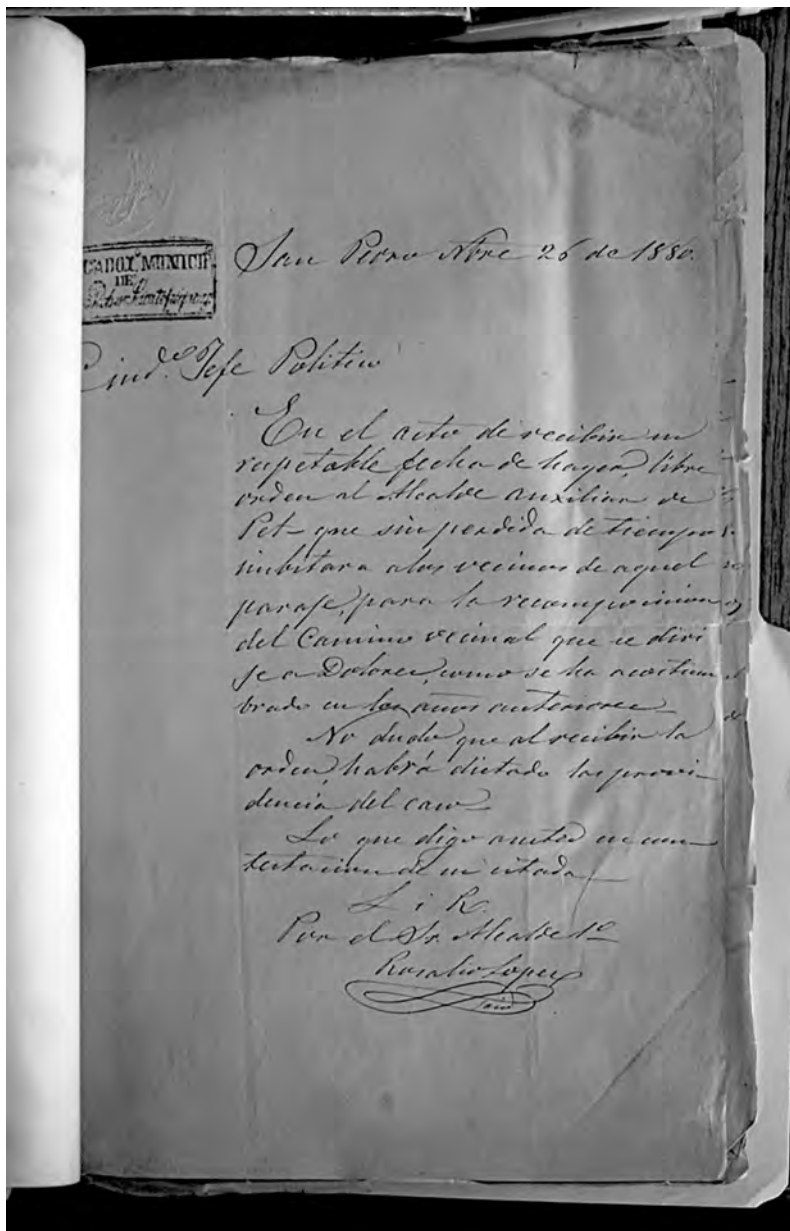 JUZGADO 1º MUNICIP
DE
San Pedro Nbre 26 de 1880.
Ciudº Jefe Politico
En el acto de recibir su
respetable fecha de hayer, libre
orden al Alcalde auxiliar de
Pet– que sin perdida de tiempo
imbitara a los vecinos de aquel
paraje, para la recomposicion
del Camino vecinal que se diri
je a Dolores, como se ha acostum
brado en los años anteriores–
No dudo que al recibir la
orden, habrá dictado las provi–
dencia del caso–
Lo que digo a usted en con–
testacion de su citada
L i R.
Por el Sr. Alcalde 1º
Rosalio Lopez
Srio